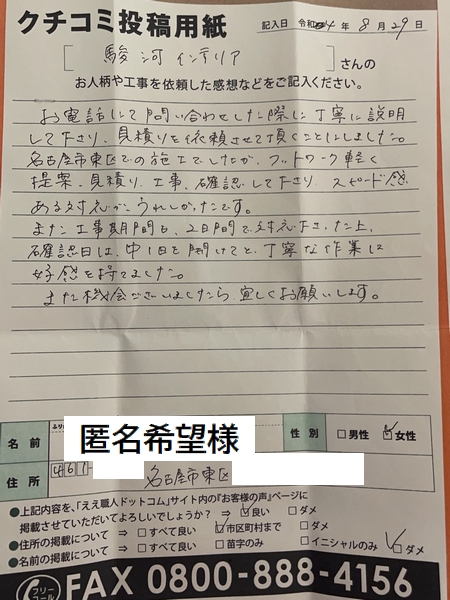 クチコミ投稿用紙
記入日 令和4年8月29日
[駿河インテリア]さんの
お人柄や工事を依頼した感想などをご記入ください。
お電話にて問い合わせした際に丁寧に説明
して下さり、見積りを依頼させて頂くことにしました。
名古屋市東区での施工でしたが、フットワーク軽く
提案、見積り、工事、確認して下さり、スピード感
ある対応がうれしかったです。
また工事期間も、2日間で対応下さった上、
確認日は、中1日を開けてと、丁寧な作業に
好感を持てました。
また機会ございましたら宜しくお願いします。
名前
匿名希望様
性別 □男性 ☑女性
住所
461-
名古屋市東区
●上記内容を、「ええ職人ドットコム」サイト内の『お客様の声』ページに
掲載させていただいてよろしいでしょうか? ⇒ ☑良い □ダメ
●住所の掲載について ⇒ □すべて良い ☑市区町村まで □ダメ
●名前の掲載について ⇒ □すべて良い □苗字のみ □イニシャルのみ ☑ダメ
フリーコール FAX 0800-888-4156